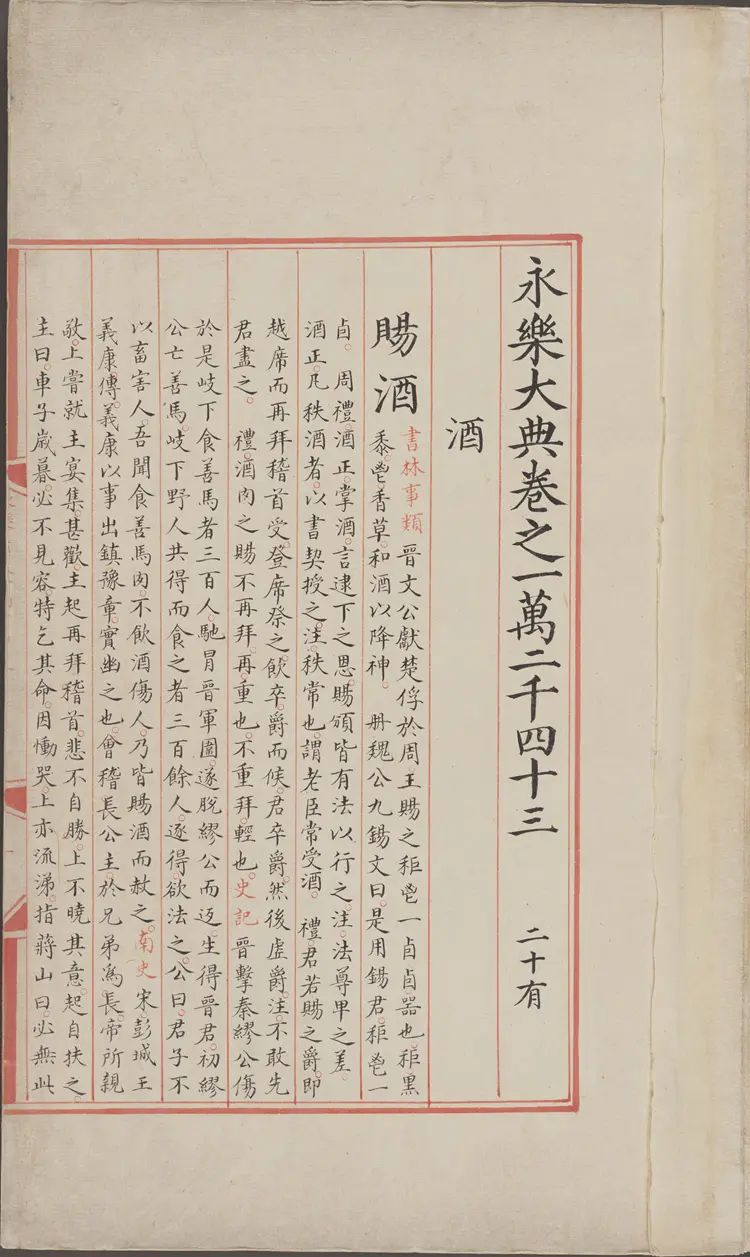 永樂大典卷之一萬二千四十三 二十有
酒
賜酒
書林事類晉文公獻楚俘於周王賜之秬鬯一卣卣器也秬黑
黍鬯香草和酒以降神 冊魏公九錫文曰是用錫君秬鬯一
卣 周禮酒正掌酒言逮下之恩賜頒皆有法以行之注法尊卑之差
酒正凡秩酒者以書契授之注秩常也謂老臣常受酒 禮君若賜之爵即
越席而再拜稽首受登席祭之飲卒爵而俟君卒爵然後虛爵注不敢先
君盡之 禮酒肉之賜不再拜再重也不重拜輕也史記晉擊秦繆公傷
於是岐下食善馬者三百人馳冒晉軍圍遂脫繆公而返生得晉君初繆
公亡善馬岐下野人共得而食之者三百餘人逐得欲法之公曰君子不
以畜害人吾聞食善馬肉不飲酒傷人乃皆賜酒而赦之南史宋彭城王
義康傳義康以事出鎮豫章實幽之也會稽長公主於兄弟為長帝所親
敬上嘗就主宴集甚歡主起再拜稽首悲不自勝上不曉其意起自扶之
主曰車子歲暮必不見容特乞其命因慟哭上亦流涕指蔣山曰必無此